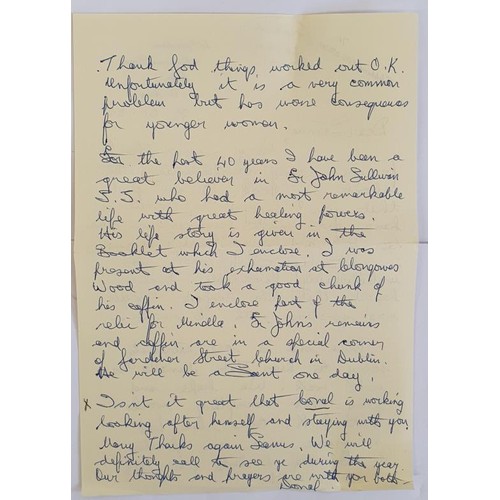 Thank God things, worked out O.K.
Unfortunately it is a very common
problem but has worse consequences
for younger women.
For the last 40 years I have been a
great believer in Fr John Sullivan
S.J. who had a most remarkable
life with great healing powers.
His life story is given in the
Booklet which I enclose. I was
present at his exhumation at Clongowes
Wood and took a good chunk of
his coffin. I enclose part of the
relic for Minella. Fr John's remains
and coffin are in a special corner
of Gardiner Street Church in Dublin.
He will be a Saint one day.
x Isn't it great that Conal is working
looking after himself and staying with you
Many Thanks again Seamus. We will
definitely call to see ye during the year
Our thoughts and prayers are with you both
Donal